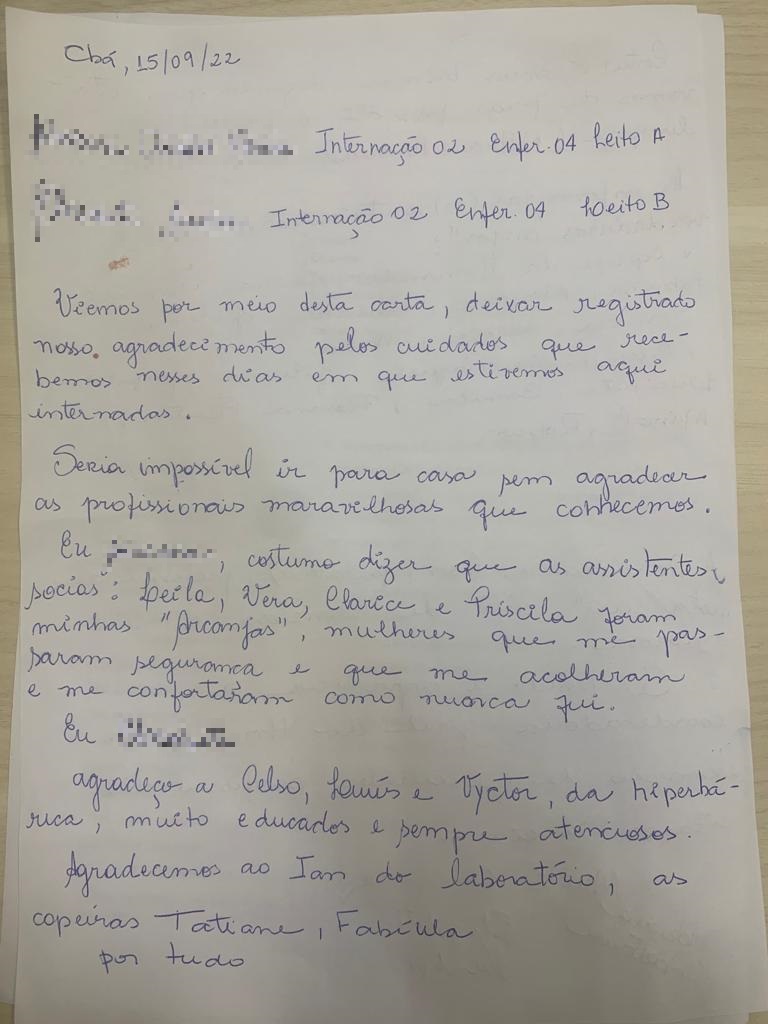 Cbá, 15/09/22
Internação 02 Enfer. 04 Leito A
Internação 02 Enfer. 04 Leito B
Viemos por meio desta carta, deixar registrado
nosso agradecimento pelos cuidados que rece-
bemos nesses dias em que estivemos aqui
internadas.
Seria impossível ir para casa sem agradecer
as profissionais maravilhosas que conhecemos.
Eu , costumo dizer que as assistentes
socias": Leila, Vera, Clarice e Priscila foram
minhas "Arcanjas", mulheres que me pas-
saram seguranca e que me acolheram
e me confortaram como nunca fui.
Eu
agradeço a Celso, Luís e Vyctor, da hiperbá-
rica, muito educados e sempre atenciosos.
Agradecemos ao Ian do laboratório, as
copeiras Tatiane, Fabíula
por tudo